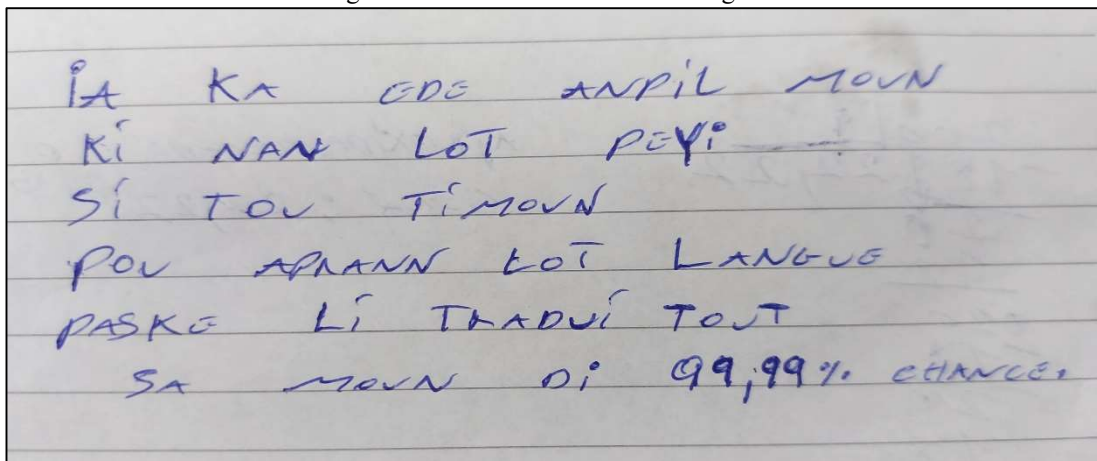 iA KA EDE ANPiL MOUN
Ki NAN LOT PEYi
Si TOU TiMOUN
POU APRANN LOT LANGUE
PASKE Li TRADUi TOUT
SA MOUN Di 99,99% CHANCE.